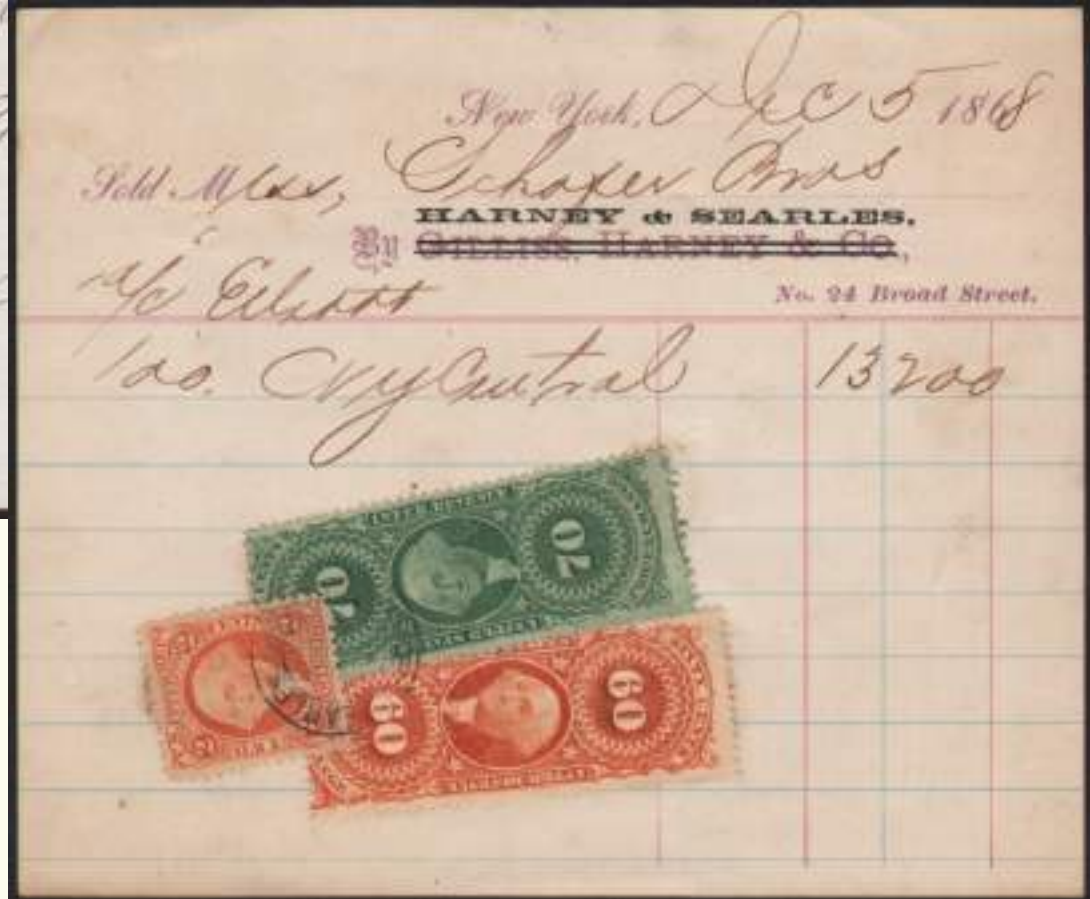 New York, Dec 5 1868
Sold Mess, Schafer Bros
HARNEY & SEARLES.
By GILLISS, HARNEY & CO.,
a/c Elliott
No. 24 Broad Street.
100 NY Central 13200
70 70
60 60